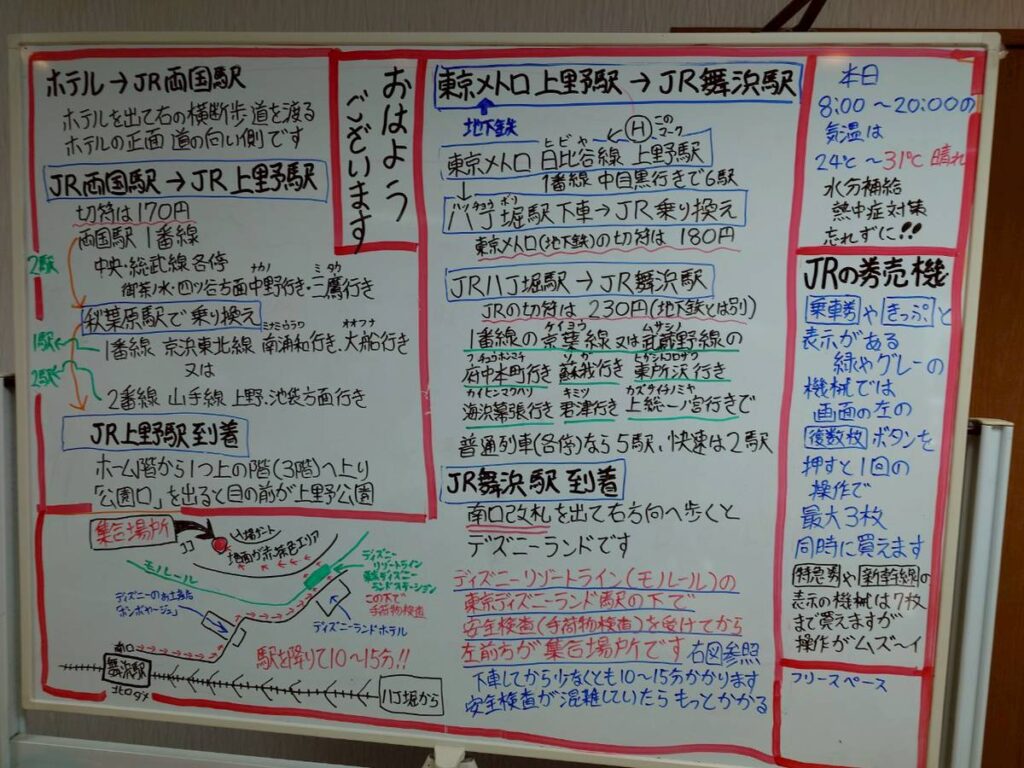 ホテル→JR両国駅
ホテルを出て右の横断歩道を渡る
ホテルの正面 道の向い側です
JR両国駅→JR上野駅
切符は170円
両国駅 1番線
2駅
中央・総武線各停
ナカノ ミタカ
御茶ノ水・四ツ谷方面中野行き・三鷹行き
秋葉原駅で乗り換え
ミナミウラワ オオフナ
1駅
1番線 京浜東北線 南浦和行き、大船行き
又は
2駅
2番線 山手線 上野、池袋方面行き
JR上野駅到着
ホーム階から1つ上の階(3階)へ上り
「公園口」を出ると目の前が上野公園
おはよう
ございます
集合場所
ココ
入場ゲート
地面が赤茶色エリア
モノレール
ディズニー
リゾートライン
東京ディズニー
ランドステーション
この下で
手荷物検査
ディズニーのお土産店
「ボンボヤージュ」
ディズニーランドホテル
駅を降りて10〜15分!!
南口
舞浜駅
八丁堀から
東京メトロ 上野駅→JR舞浜駅
地下鉄
H
この
マーク
ヒビヤ
東京メトロ 日比谷線 上野駅
1番線 中目黒行きで6駅
ハッチョウボリ
八丁堀駅下車→JR乗り換え
東京メトロ(地下鉄)の切符は 180円
JR八丁堀駅→JR舞浜駅
JRの切符は 230円(地下鉄とは別)
ケイヨウ ムサシノ
1番線の京葉線又は武蔵野線の
フチュウホンマチ ソガ ヒガシトコロザワ
府中本町行き 蘇我行き 東所沢行き
カイヒンマクハリ キミツ カズサイチノミヤ
海浜幕張行き 君津行き 上総一ノ宮行きで
普通列車(各停)なら5駅、快速は2駅
JR舞浜駅到着
南口改札を出て右方向へ歩くと
デズニーランドです
ディズニーリゾートライン(モノレール)の
東京ディズニーランド駅の下で
安全検査(手荷物検査)を受けてから
左前方が集合場所です 右図参照
下車してから少なくとも10〜15分かかります
安全検査が混雑していたらもっとかかる
本日
8:00〜20:00の
気温は
24℃〜31℃ 晴れ
水分補給
熱中症対策
忘れずに!!
JRの券売機
乗車券やきっぷと
表示がある
緑やグレーの
機械では
画面の左の
複数枚ボタンを
押すと1回の
操作で
最大3枚
同時に買えます
特急券や新幹線の
表示の機械は7枚
まで買えますが
操作がムズ〜イ
フリースペース